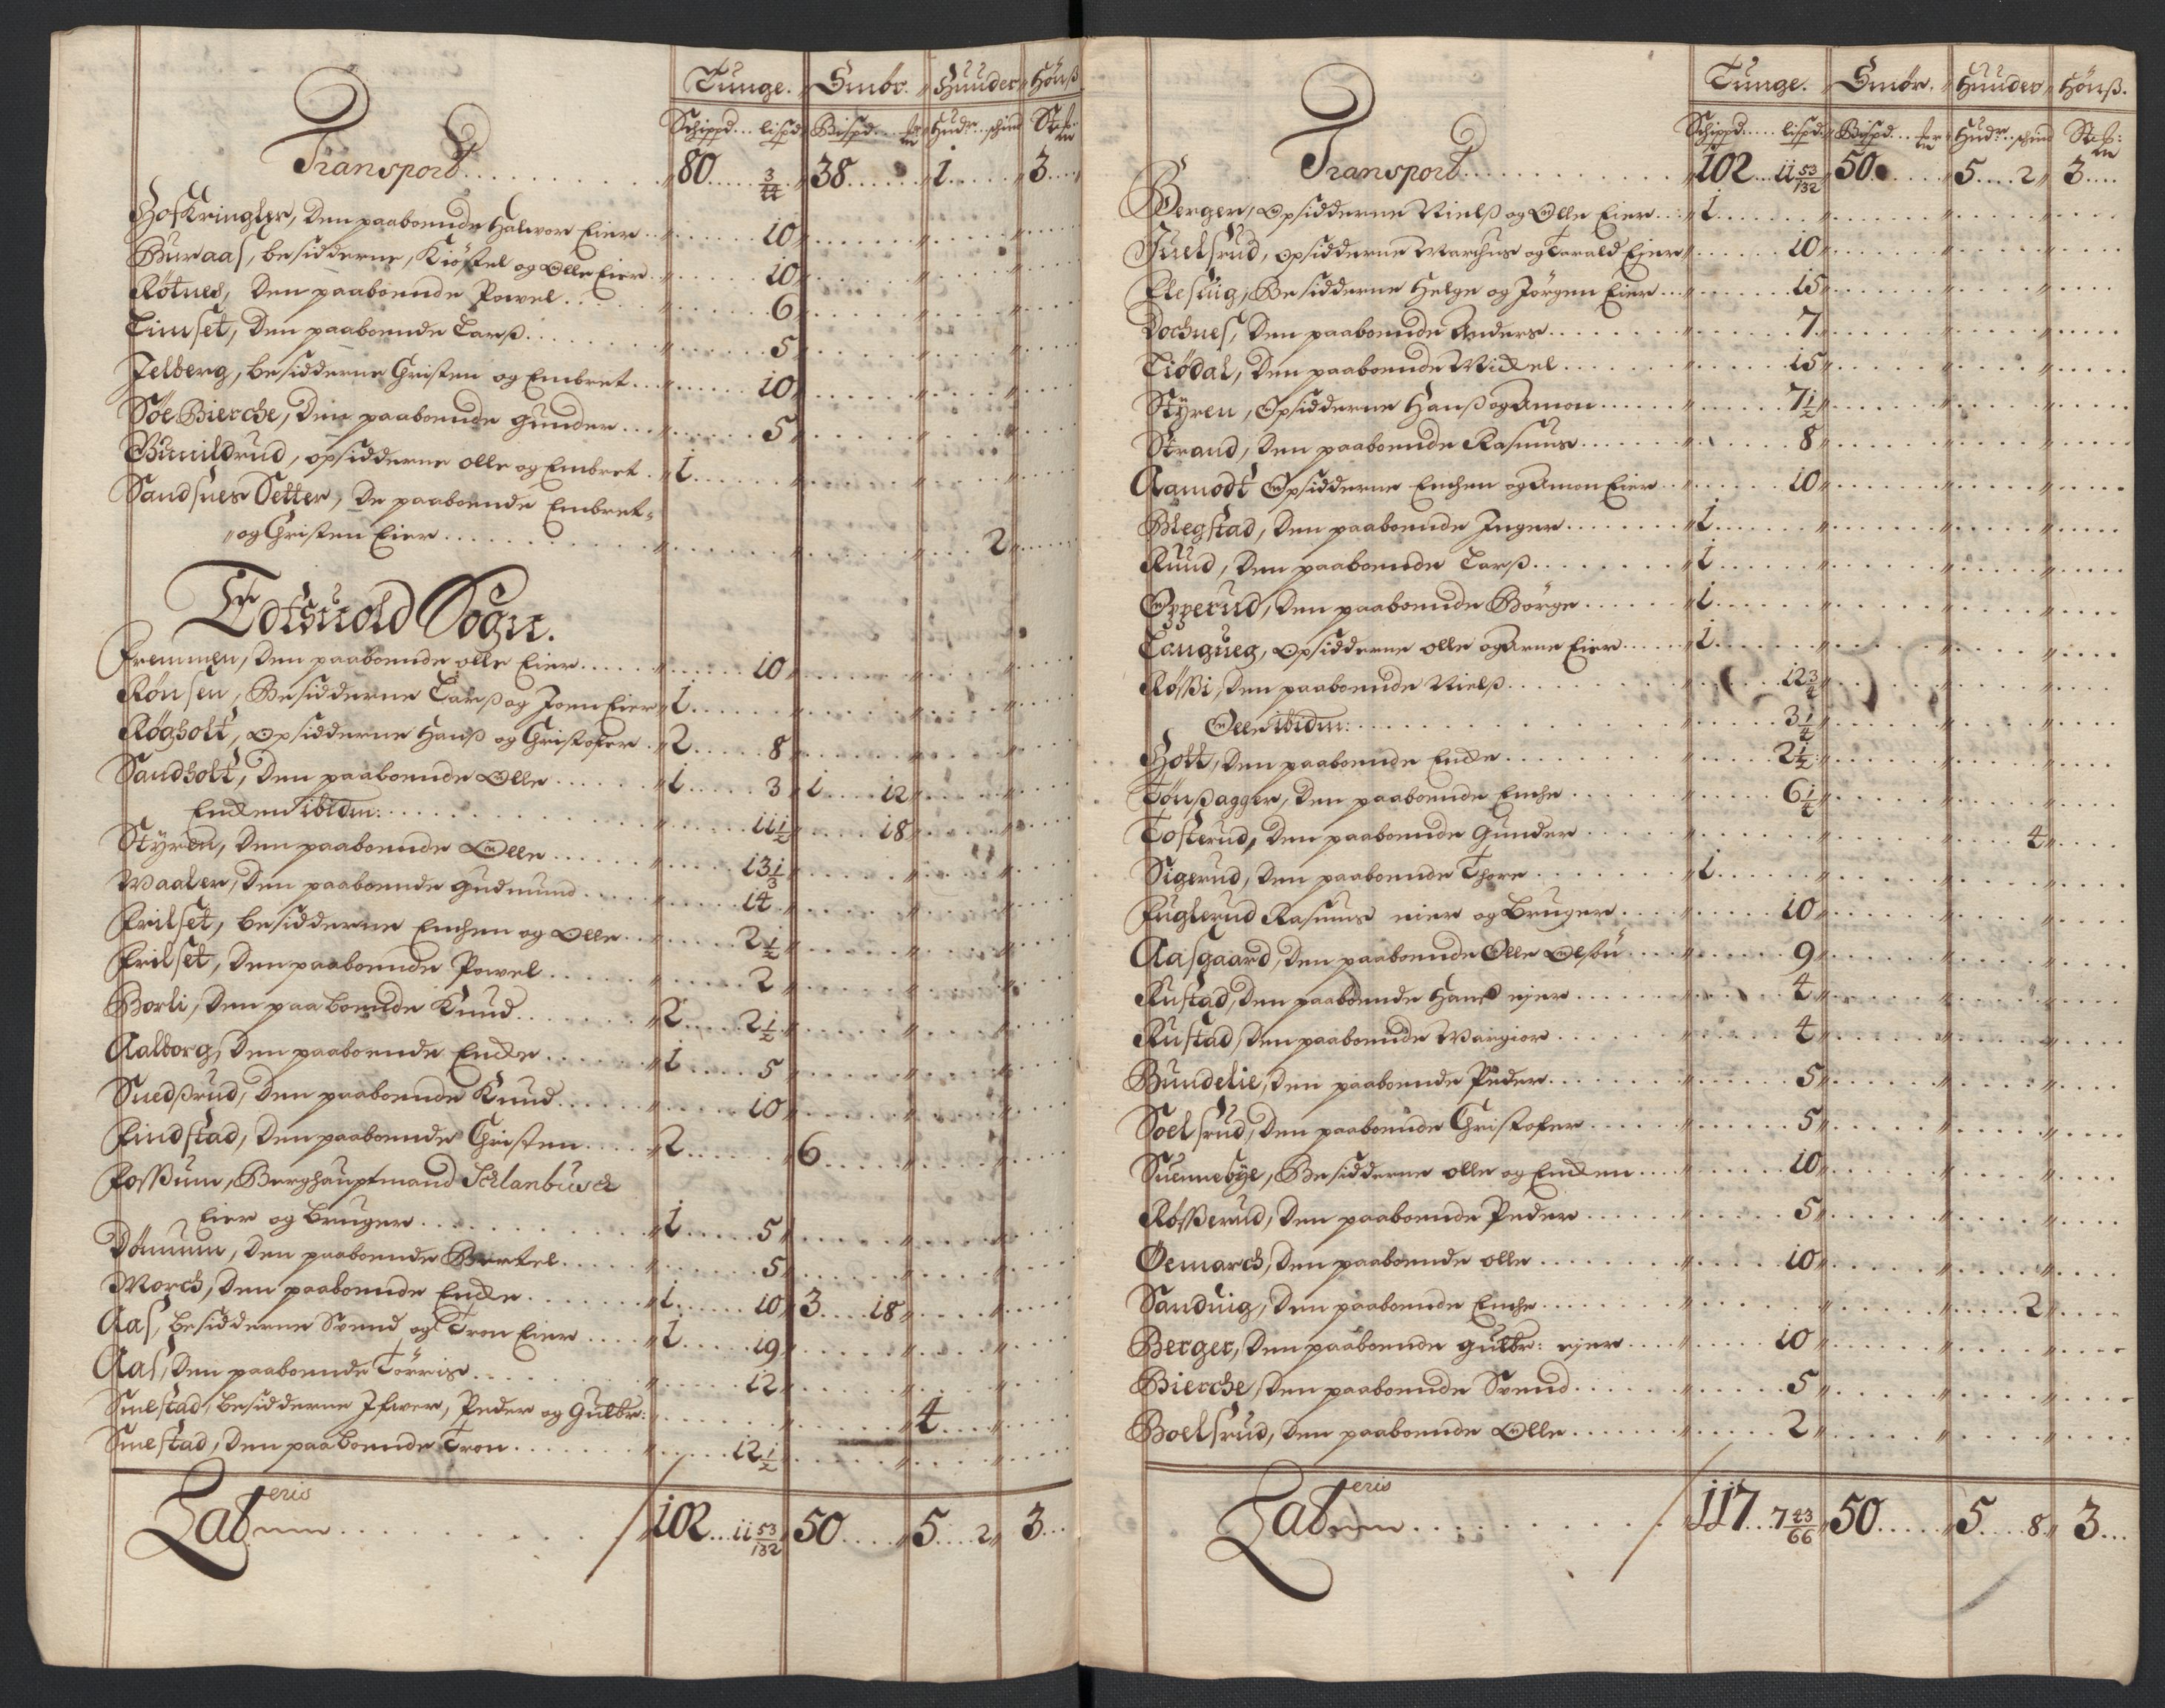 Tunge. Smör. Huuder Hönß
Schippd... lispd Bispd... Hudr.. schind Stk:
Transport . . . 80 . . . 3/44 38 . . . 1 . . . 3
Hofkringler, den paaboende Halvor Eier . . . 10
Buraas, besidderne, Kiöstel og Olle Eier . . . 10
Rötnes, den paaboende Powel . . . 6
Limset, den paaboende Larß . . . 5
Jelberg, besidderne Christen og Embret . . . 10
Söe Bierche, den paaboende Gunder . . . 5
Gunildrud, opsidderne Olle og Embret . . . 1
Sandsnes Setter, De paaboende Embret
og Christen Eier . . . 2
Edtsuold Sogn.
Fremmen, den paaboende Olle Eier . . . 10
Rönsen, Besidderne Larß og Joen Eier 1
Røgholt, Opsidderne Hanß og Christofer . 2 . . . 8
Sandholt, den paaboende Olle . . . 1 . . . 3 1 . . . 12
Enchen ibidm: . . . 11 1/2 . . . 18
Styren, den paaboende Olle . . . 13 1/3
Waaler, den paaboende Gudmund . . . 14
Frilset, besidderne Enchen og Olle . . . 2 1/2
Frilset, den paaboende Powel . . . 2
Borli, den paaboende Knud . . . 2 . . . 2 1/2
Aalborg, den paaboende Encke . . . 1 . . . 5
Suedßrud, den paaboende Knud . . . 10
Findstad, den paaboende Christen . . . 2 . . . 6
Fossum, Berghauptmand Schlanbusch
Eier og Bruger . . . 1 . . . 5
Dömum, den paaboende Bertel . . . 5
Morch, den paaboende Encke . . . 1 . . . 10 3 . . . 18
Aas, besidderne Svend og Tron Eier . . . 1 . . . 19
Aas, den paaboende Törris . . . 12
Smestad, besidderne Ifwer, Peder og Gulbr: . . . 4
Smestad, den paaboende Tron . . . 12 1/2
Lateris . . . 102 . . 11 53/132 50 . . . 5 . . . 2 3
Tunge. Smör. Huuder Hönß.
Schippd.... lispd. Bispd... Hudr.. schind Stk:
Transport . . . 102 . . 11 53/132 50 . . . 5 . . . 2 3
Berger, Opsidderne Nielß og Olle Eier . . . 1
Juelsrud, opsidderne Marchus og Tarald Eier . . . 10
Elesuig, Besidderne Helge og Jörgen Eier . . . 15
Dochnes, den paaboende Anders . . . 7
Liödal, den paaboende Mickel . . . 15
Styren, Opsidderne Hanß og Amon . . . 7 1/2
Strand, den paaboende Rasmus . . . 8
Aamodt Opsidderne Enchen og Amon Eier . . . 10
Blegstad, den paaboende Inger . . . 1
Ruud, den paaboende Larß . . . 1
Opperud, den paaboende Börge . . . 1
Langueg, Opsidderne Olle og Arne Eier . . . 1
Røßi, den paaboende Nielß . . . 12 3/4
Olle ibidm: . . . 3 1/4
Holt, den paaboende Encke . . . 2 1/2
Tönßagger, den paaboende Enche . . . 6 1/4
Tosterud, den paaboende Gunder . . . 4
Sigerud, den paaboende Thore . . . 1
Fuglerud Rasmus eier og Bruger . . . 10
Aasgaard, den paaboende Olle Olsön . . . 9
Rustad, den paaboende Hans ejer . . . 4
Rustad, den paaboende Margior . . . 4
Bundelie, den paaboende Peder . . . 5
Soelsrud, den paaboende Christofer . . . 5
Suennebye, Besidderne Olle og Encken . . . 10
Røsserud, den paaboende Peder . . . 5
Öemarch, den paaboende Olle . . . 10
Sanduig, den paaboende Enche . . . 2
Berger, den paaboende Gulbr: ejer . . . 10
Bierche, den paaboende Svend . . . 5
Boelsrud, den paaboende Olle . . . 2
Lateris . . . 117 . . 7 43/66 50 . . . 5 . . . 8 3